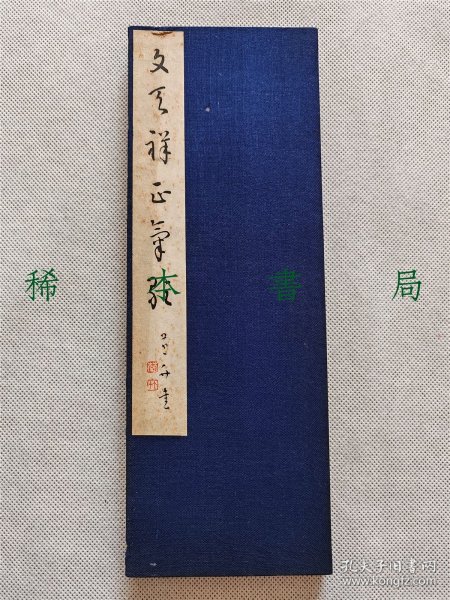 文天祥正氣歌
稀本書局
孔夫子旧书网
www.kongfz.com